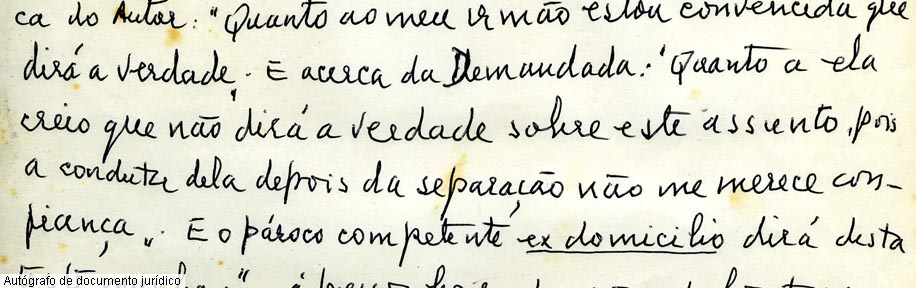 ca do Autor: "Quanto ao meu irmão estou convencida que
dirá a verdade". E acerca da Demandada: "Quanto a ela
creio que não dirá a verdade sobre este assunto, pois
a conduta dela depois da separação não me merece con-
fiança". E o pároco competente ex domicilio dirá desta
Autógrafo de documento jurídico